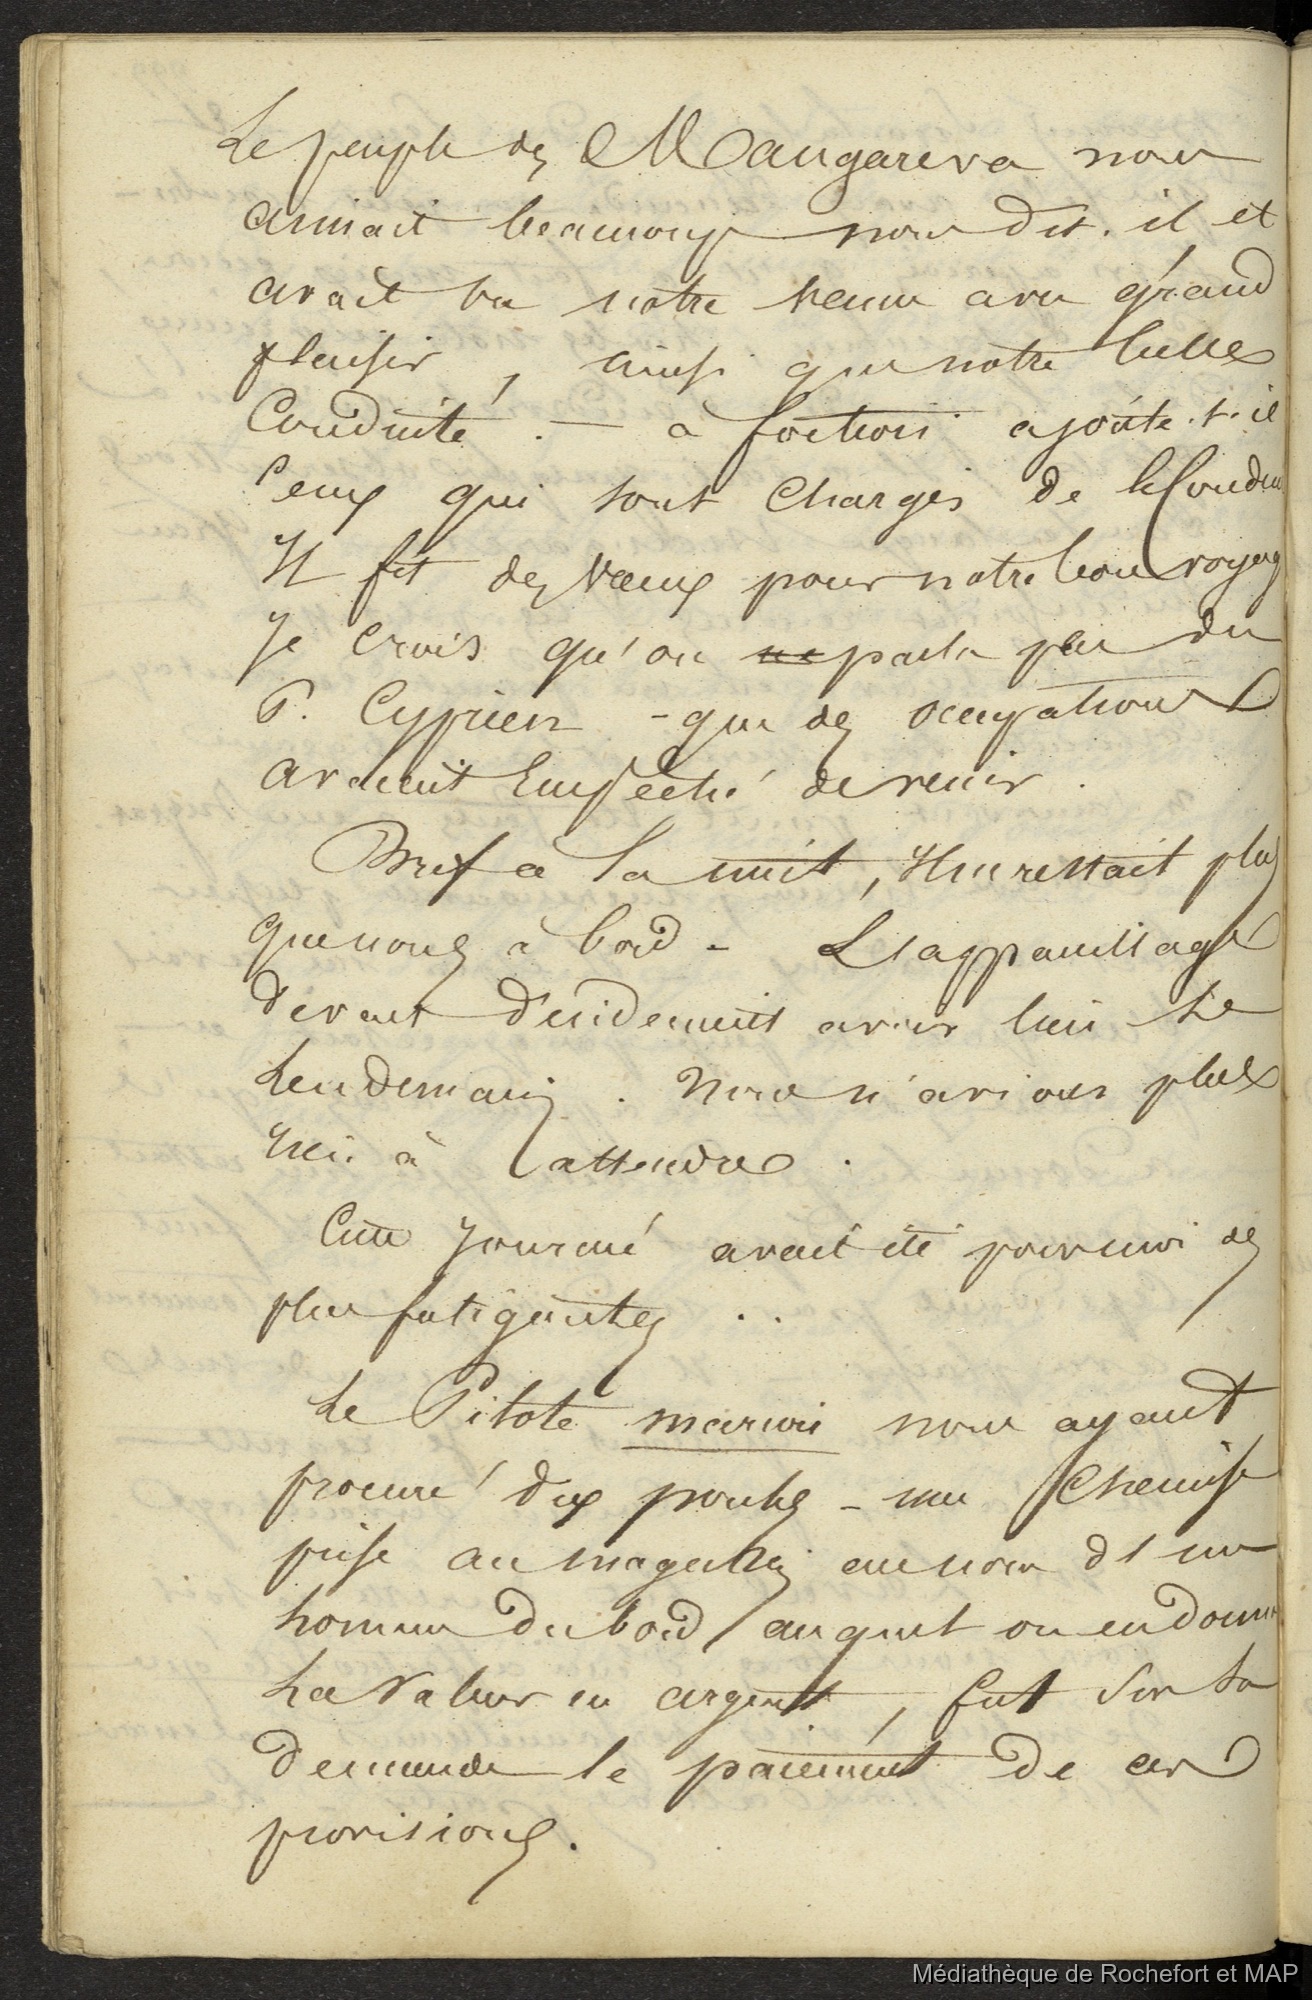 Le peuple des Mangareva nous
aimait beaucoup nous dit-il et
avait vu notre venue avec grand
plaisir, ainsi que notre belle
Conduite. — a fortiori ajoute-t-il
Ceux qui sont chargés de le Conduire
Il fit des vœux pour notre bon voyage
Je Crois qu'on ne parla pas du
P. Cyprien - que des occupations
avaient Empêché de venir.
Bref a la nuit, Il ne restait plus
que nous à bord - L'appareillage
devait décidement avoir lieu Le
Lendemain. Nous n'avions plus
rien à attendre.
Cette Journée avait été pour moi des
plus fatigantes ..
Le Pilote marion nous ayant
procuré dix poules - une Chemise
prise au magasin au nom d'un
homme du bord auquel on en donna
La Valeur en argent, fut Sur Sa
demande le paiement de ces
provisions.
Médiathèque de Rochefort et MAP